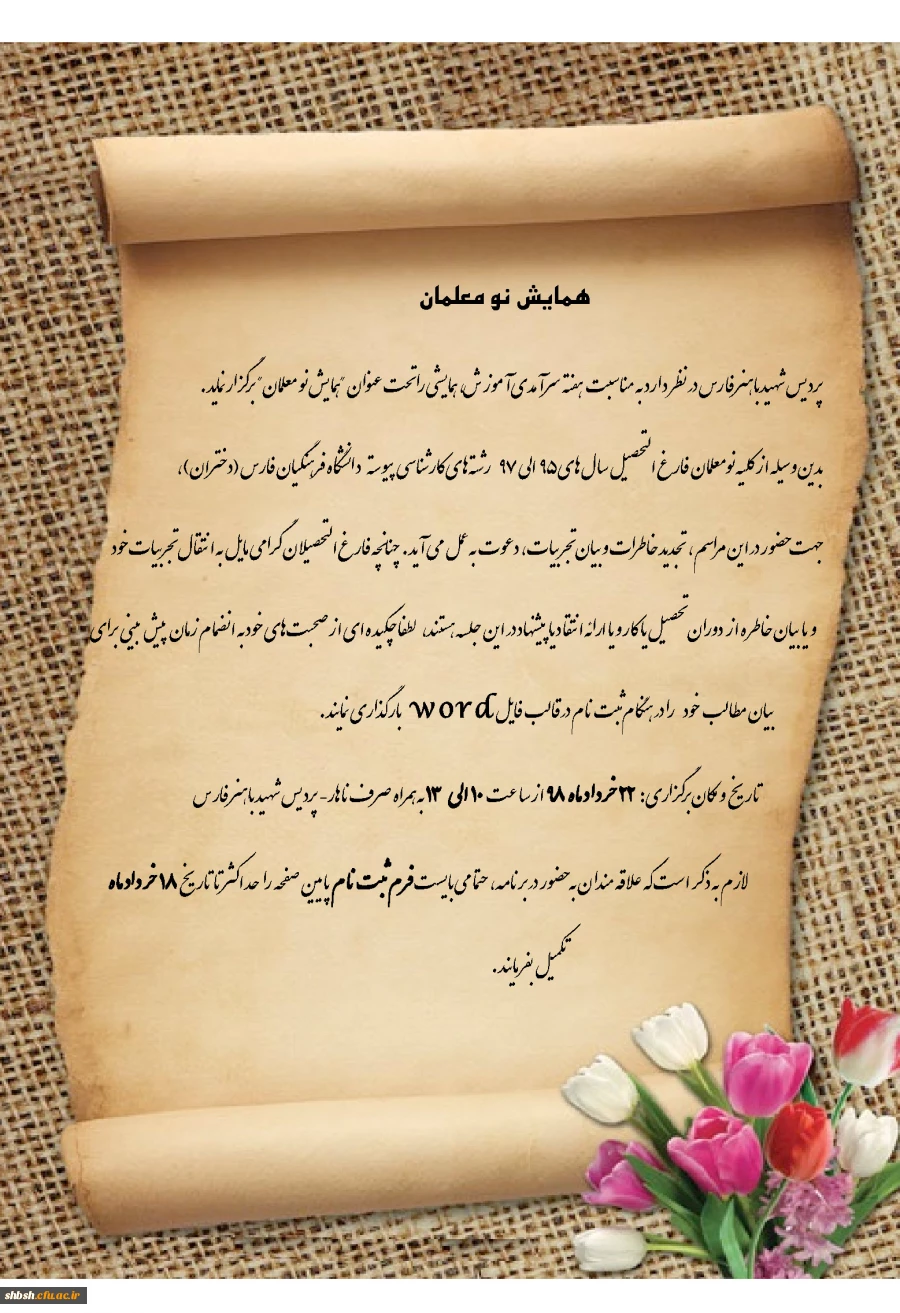 همایش نو معلمان
پردیس شهید باهنر فارس در نظر دارد به مناسبت هفته سرآمدی آموزش، همایشی را تحت عنوان "همایش نو معلمان" برگزار نماید.
بدین وسیله از کلیه نومعلمان فارغ التحصیل سال های ۹۵ الی ۹۷ رشته های کارشناسی پیوسته دانشگاه فرهنگیان فارس (دختران)،
جهت حضور در این مراسم، تجدید خاطرات و بیان تجربیات، دعوت به عمل می آید. چنانچه فارغ التحصیلان گرامی مایل به انتقال تجربیات خود
و یا بیان خاطره از دوران تحصیل یا کار و یا ارائه انتقاد یا پیشنهاد در این جلسه هستند، لطفا چکیده ای از صحبت های خود به انضمام زمان پیش بینی برای
بیان مطالب خود را در هنگام ثبت نام در قالب فایل word بارگذاری نمایند.
تاریخ و مکان برگزاری: ۲۲ خرداد ماه ۹۸ از ساعت ۱۰ الی ۱۳ به همراه صرف ناهار - پردیس شهید باهنر فارس
لازم به ذکر است که علاقه مندان به حضور در برنامه، حتما می بایست فرم ثبت نام پایین صفحه را حداکثر تا تاریخ ۱۸ خرداد ماه
تکمیل بفرمایند.
shbsh.cfu.ac.ir